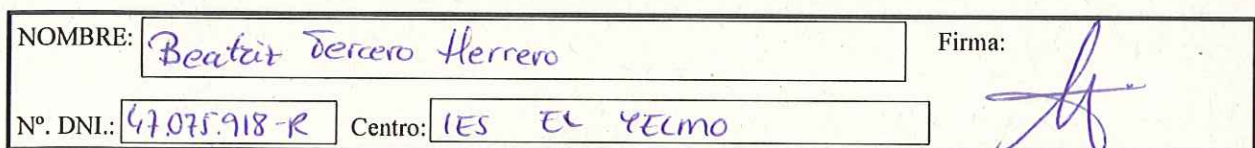 NOMBRE: Beatriz Tercero Herrero Firma:
Nº. DNI.: 47.075.918-R Centro: IES EL YELMO